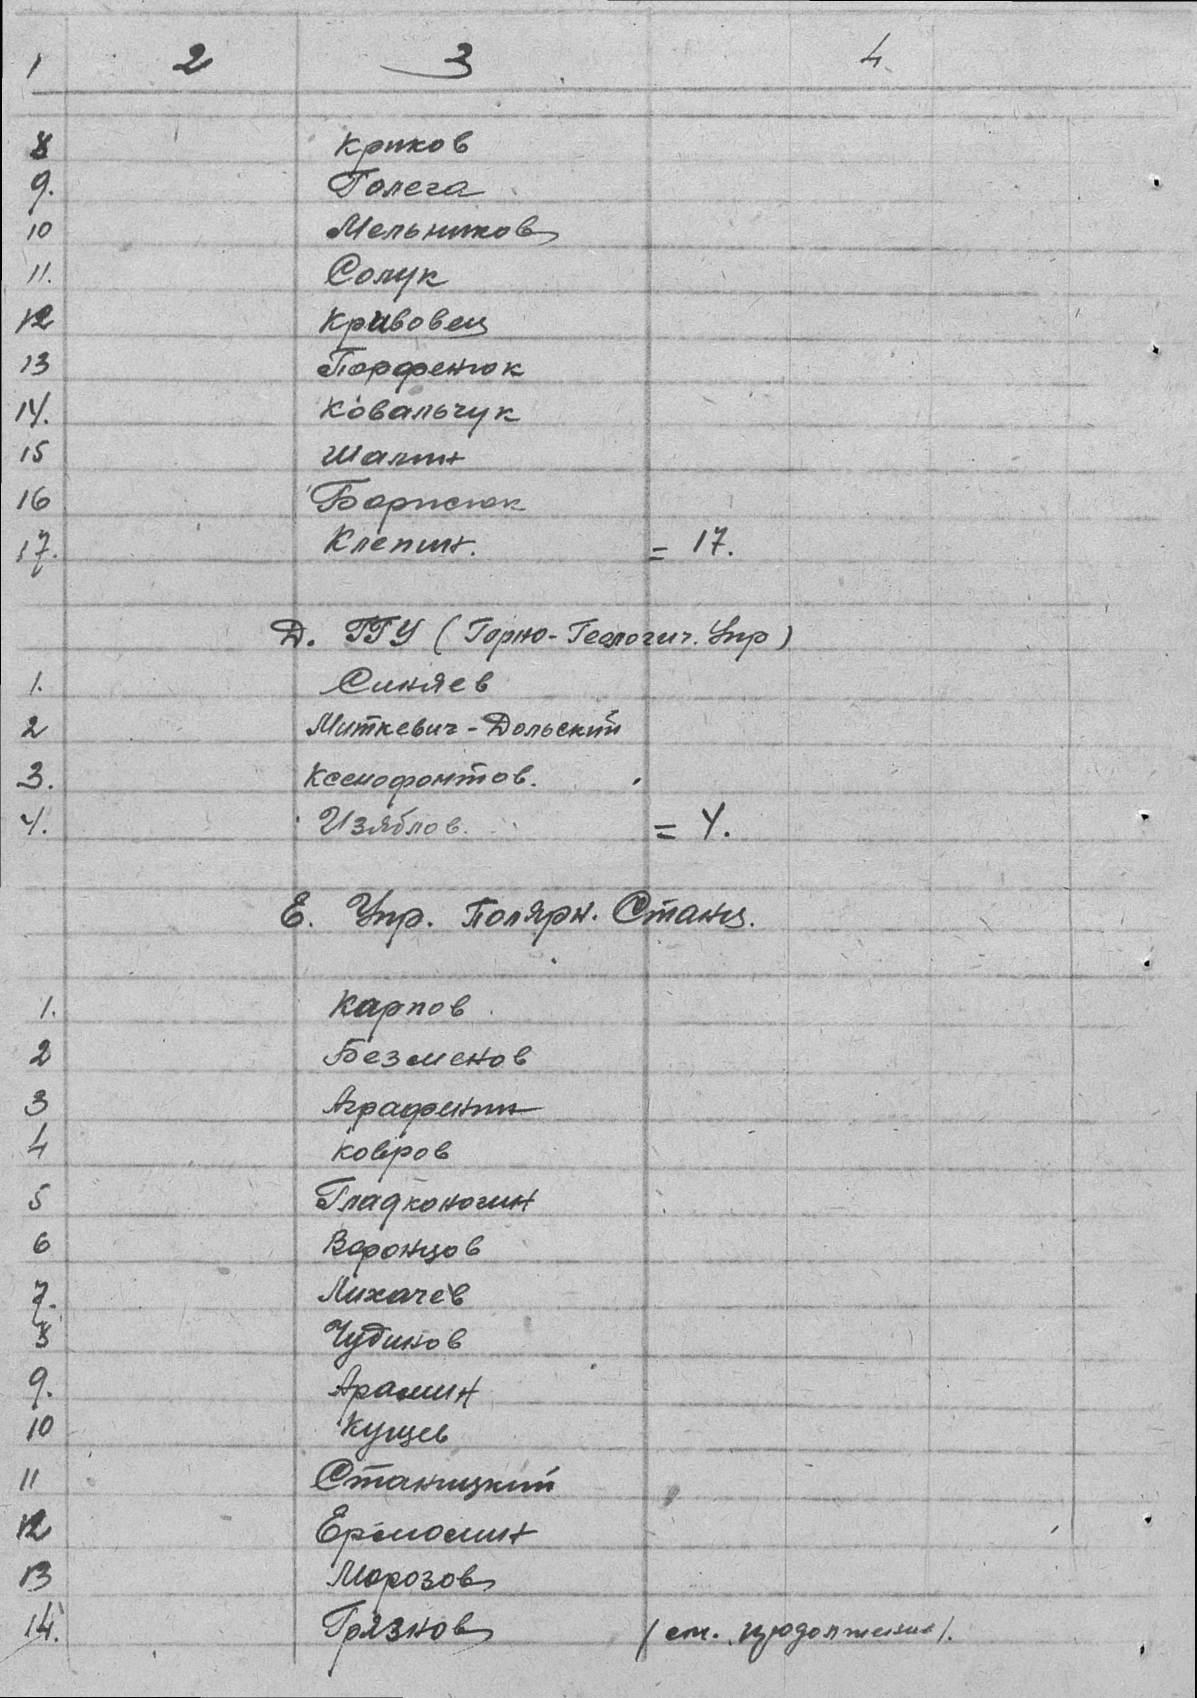 1 2 3 4
8 Криков
9. Голега
10 Мельников
11. Солук
12 Кривовец
13 Парфенюк
14. Ковальчук
15 Шалин
16 Борисюк
17. Клепин. = 17.
Д. ГГУ (Горно-Геологич. Упр)
1. Синяев
2 Миткевич-Дольский
3. Ксенофонтов.
4. Изяблов. = 4.
Е. Упр. Полярн. Станц.
1. Карпов
2 Безменов
3 Аграфенин
4 Ковров
5 Гладконогин
6 Воронцов
7. Лихачев
8 Чудинов
9. Арамин
10 Кущев
11 Станицкий
12 Ермошин
13 Морозов
14. Грязнов (см. продолжение).